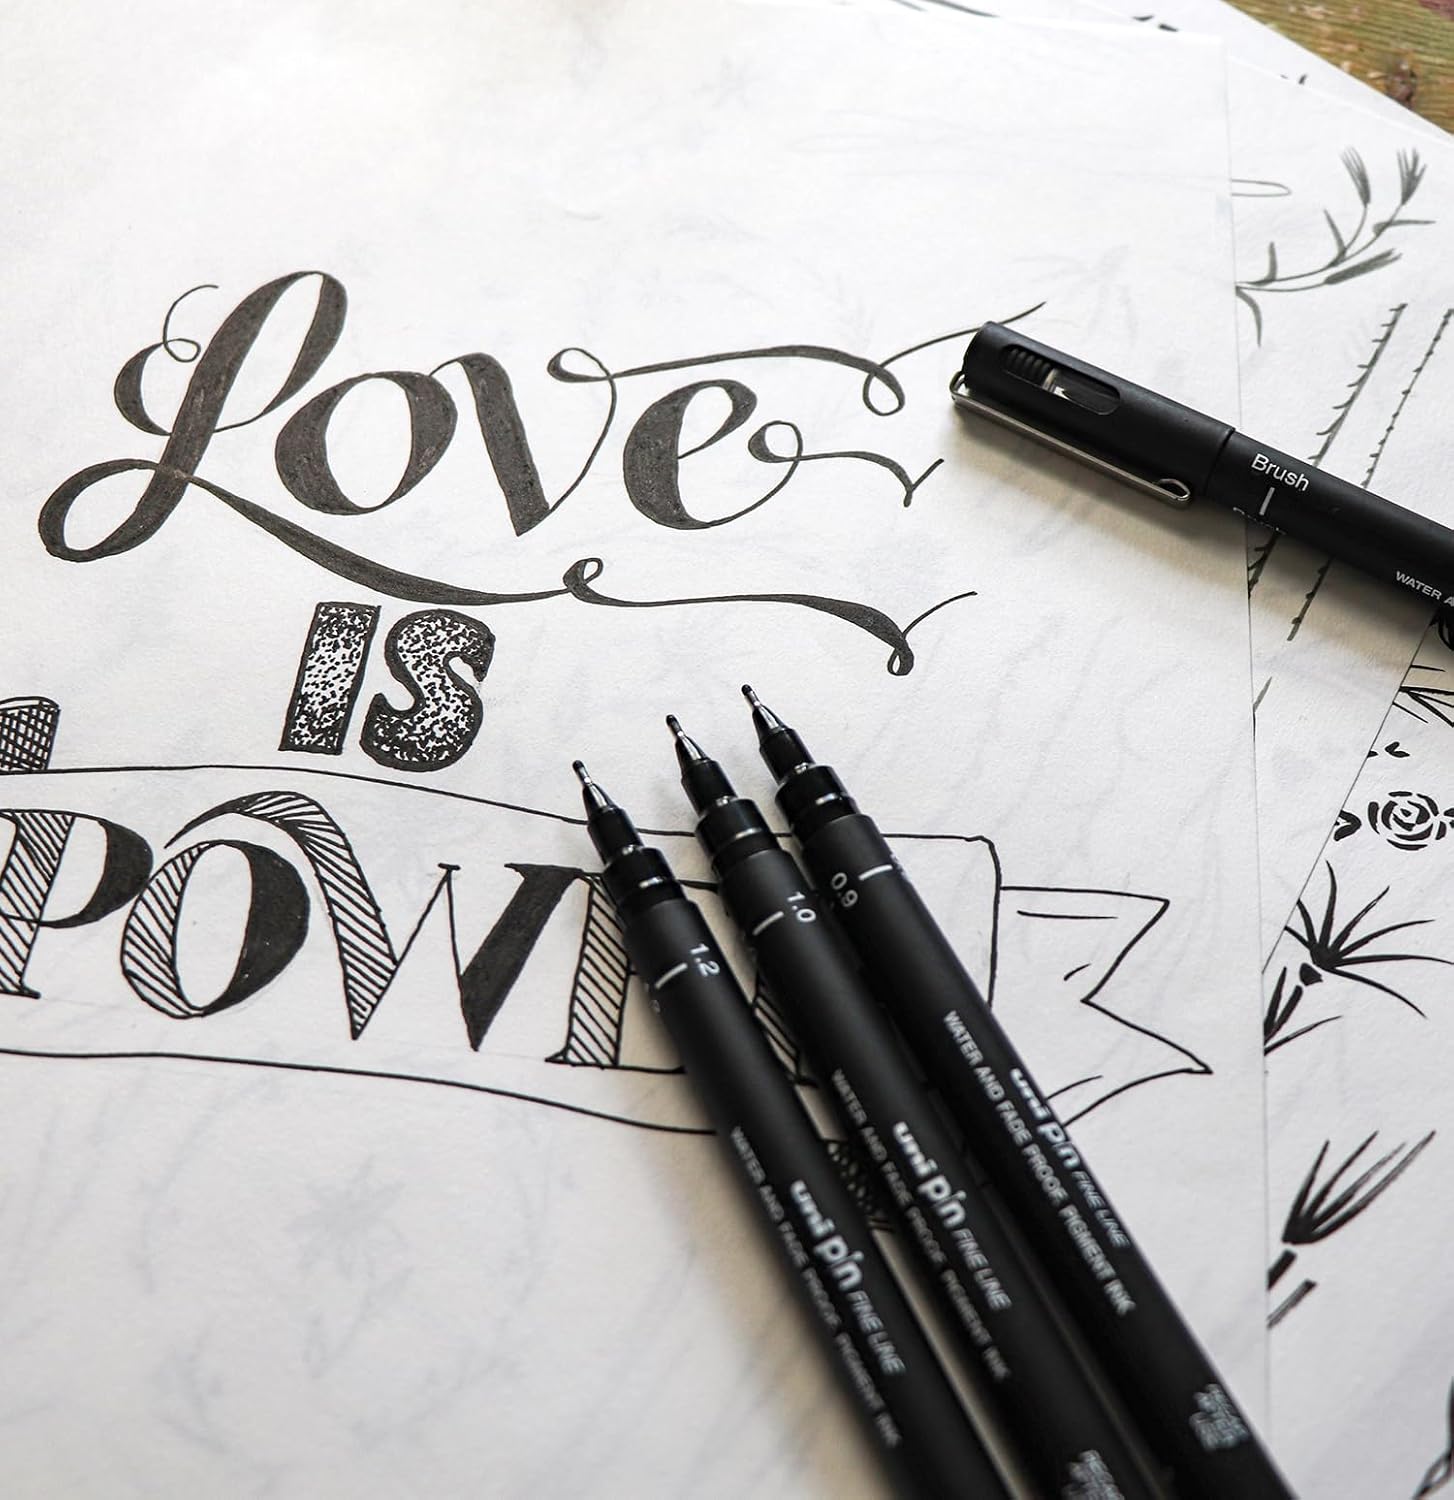 Love
IS
POW
Brush
WATER A
0.9
WATER AND FADE PROOF, PIGMENT INK
uni pin FINE LINE
1.0
WATER AND FADE PROOF, PIGMENT INK
uni pin FINE LINE
1.2
WATER AND FADE PROOF, PIGMENT INK
uni pin FINE LINE